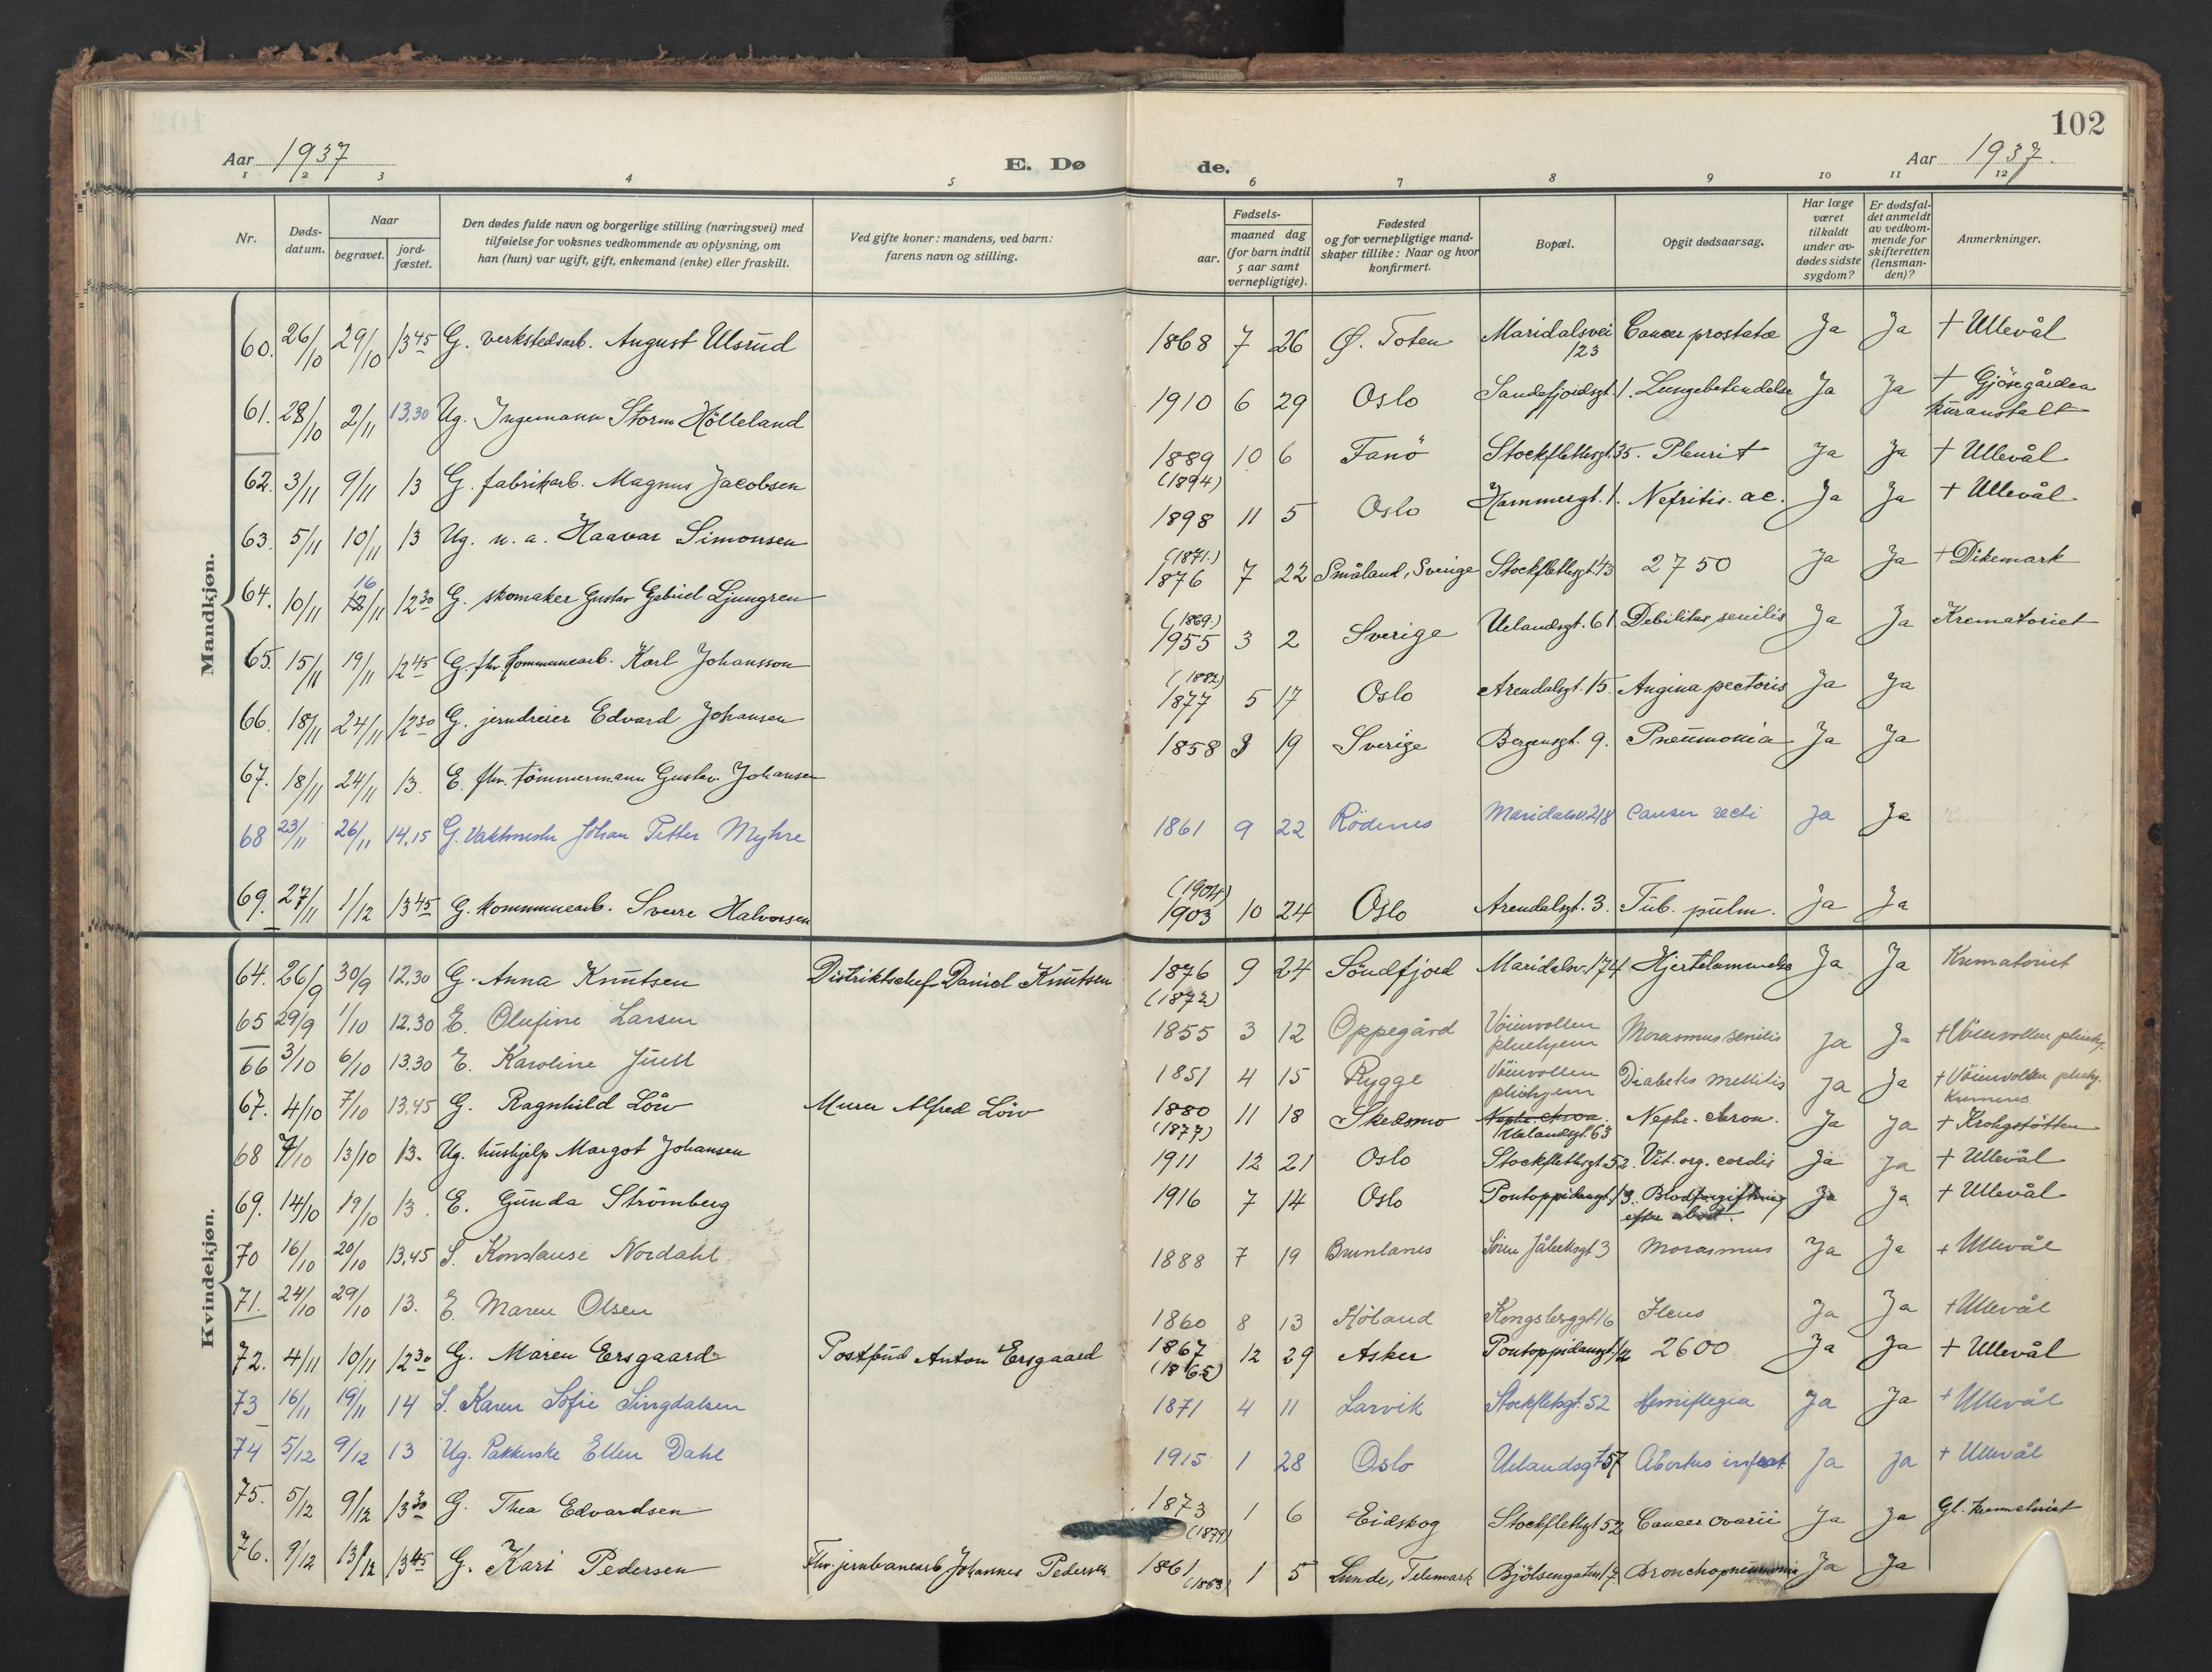 102
Aar 1937
E. Dø
de.
Aar 1937.
1 2 3 4 5 6 7 8 9 10 11 12
Nr.
Døds-
datum.
Naar
begravet.
jord-
fæstet.
Den dødes fulde navn og borgerlige stilling (næringsvei) med
tilføielse for voksnes vedkommende av oplysning, om
han (hun) var ugift, gift, enkemand (enke) eller fraskilt.
Ved gifte koner: mandens, ved barn:
farens navn og stilling.
Fødsels-
aar.
maaned dag
(for barn indtil
5 aar samt
vernepligtige).
Fødested
og for vernepligtige mand-
skaper tillike: Naar og hvor
konfirmert.
Bopæl.
Opgit dødsaarsag.
Har læge
været
tilkaldt
under av-
dødes sidste
sygdom?
Er dødsfal-
det anmeldt
av vedkom-
mende for
skifteretten
(lensman-
den)?
Anmerkninger.
Mandkjøn.
60. 26/10 29/10 13 45 G. verkstedsarb. August Ulsrud 1868 7 26 Ø. Toten Maridalsvei 123 Cancer prostatæ Ja Ja + Ullevål
61. 28/10 2/11 13.30 Ug. Ingemann Storm Hölleland 1910 6 29 Oslo Sandefjordsgt. 1. Lungebetendelse Ja Ja + Gjøsegården kuranstalt
62. 3/11 9/11 13 G. fabrikarb. Magnus Jacobsen 1889 (1894) 10 6 Fanö Stockflethsgt. 35. Pleurit Ja Ja + Ullevål
63. 5/11 10/11 13 Ug. u. a. Haavar Simonsen 1898 11 5 Oslo Hammersgt. 1. Nefritis. ac. Ja Ja + Ullevål
64. 10/11 16/11 12 30 G. skomaker Gustav Gabriel Ljungren (1871.) 1876 7 22 Småland, Sverige Stockflethsgt. 43 2750 Ja Ja + Dikemark
65. 15/11 19/11 12 45 G. fhv. kommunearb. Karl Johansson (1869.) 1955 3 2 Sverige Uelandsgt. 61 Debilitas senilis Ja Ja Krematoriet
66. 18/11 24/11 12 30 G. jerndreier Edvard Johansen (1882) 1877 5 17 Oslo Arendalsgt. 15. Angina pectoris Ja Ja
67. 18/11 24/11 13. E. fhv. tömmermann Gustav Johansen 1858 3 19 Sverige Bergensgt. 9. Pneumonia Ja Ja
68 23/11 26/11 14.15 G. Vaktmester Johan Petter Myhre 1861 9 22 Rödenes Maridalsv. 218 Cancer recti Ja Ja
69. 27/11 1/12 13 45 G. kommunearb. Sverre Halvorsen (1904) 1903 10 24 Oslo Arendalsgt. 3. Tub. pulm. Ja Ja
Kvindekjøn.
64. 26/9 30/9 12.30 G. Anna Knutsen Distriktschef Daniel Knutsen 1876 (1872) 9 24 Söndfjord Maridalsv. 174 Hjertelammelse Ja Ja Krematoriet
65 29/9 1/10 12.30 E. Olufine Larsen 1855 3 12 Oppegård Vöienvollen pleiehjem Marasmus senilis Ja Ja + Vöienvollen pleiehj.
66 3/10 6/10 13.30 E. Karoline Juell 1851 4 15 Rygge Vöienvollen pleiehjem Diabetes mellitis Ja Ja + Vöienvollen pleiehj.
67. 4/10 7/10 13.45 G. Ragnhild Löw Murer Alfred Löw 1880 (1877) 11 18 Skedsmo Uelandsgt. 63 Nephr. chron. Ja Ja + Krohgstötten
68 7/10 13/10 13. Ug. hushjelp Margot Johansen 1911 12 21 Oslo Stockflethsgt. 52. Vit. org. cordis Ja Ja + Ullevål
69. 14/10 19/10 13. E. Gunda Strömberg 1916 7 14 Oslo Pontoppidansgt. 13. Blodforgiftning efter abort. Ja Ja + Ullevål
70 16/10 20/10 13.45 S. Konstanse Nordahl 1888 7 19 Brunlanes Sören Jåbecksgt 3 Marasmus Ja Ja + Ullevål
71. 24/10 29/10 13. E. Maren Olsen 1860 8 13 Höland Kongsberggt 16 Ileus Ja Ja + Ullevål
72. 4/11 10/11 12 30 G. Maren Ersgaard Postbud Anton Ersgaard 1867 (1865) 12 29 Asker Pontoppidansgt. 2600 Ja Ja + Ullevål
73 16/11 19/11 14 S. Karen Sofie Singdalsen 1871 4 11 Larvik Stockflethsgt. 52 Hemiflegia Ja Ja + Ullevål
74 5/12 9/12 13 Ug. Pakkerske Ellen Dahl 1915 1 28 Oslo Uelandsgt 57 Abortus infect Ja Ja + Ullevål
75. 5/12 9/12 13 30 G. Thea Edvardsen 1873 (1879) 1 6 Eidskog Stockflethsgt 52 Cancer ovarii Ja Ja Gl. krematoriet
76. 9/12 13/12 13 45 G. Kari Pedersen Fhv. jernbanearb. Johannes Pedersen 1861 (1863) 1 5 Lunde, Telemark Bjölsengaten 17. Bronchopneumonia Ja Ja